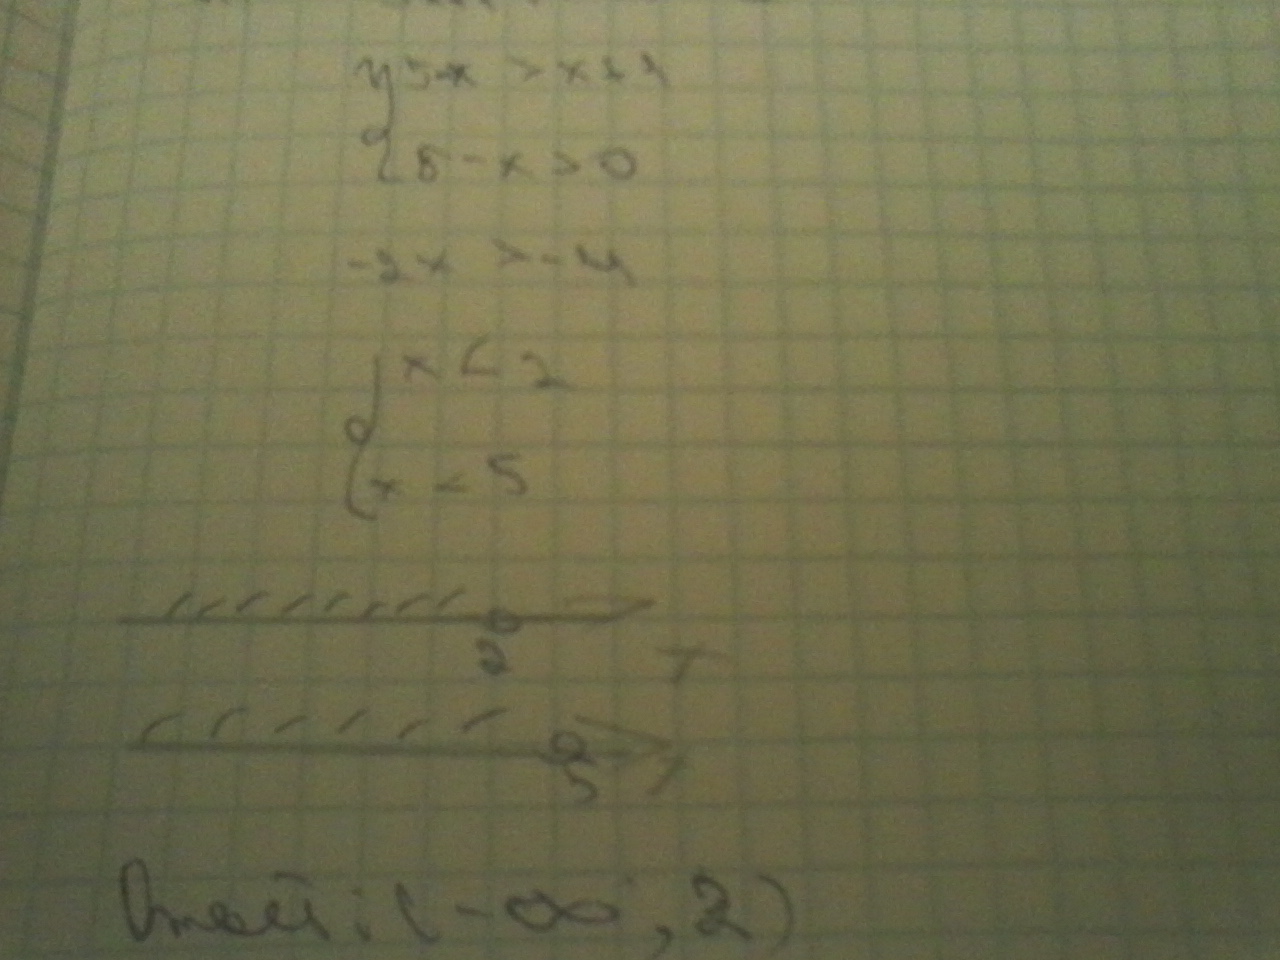 5-x > x+1
5-x>0
-2x > -4
x < 2
x < 5
2
x
5
Ответ: (-∞, 2)